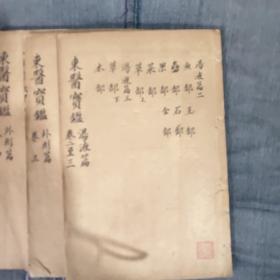 湯液篇二
魚部 玉部
蟲部 石部
果部 金部
菜部
草部上
湯液篇三
草部下
木部
東醫寶鑑 湯液篇
卷二至三
東醫寶鑑 外形篇
卷三
寶鑑 外形篇